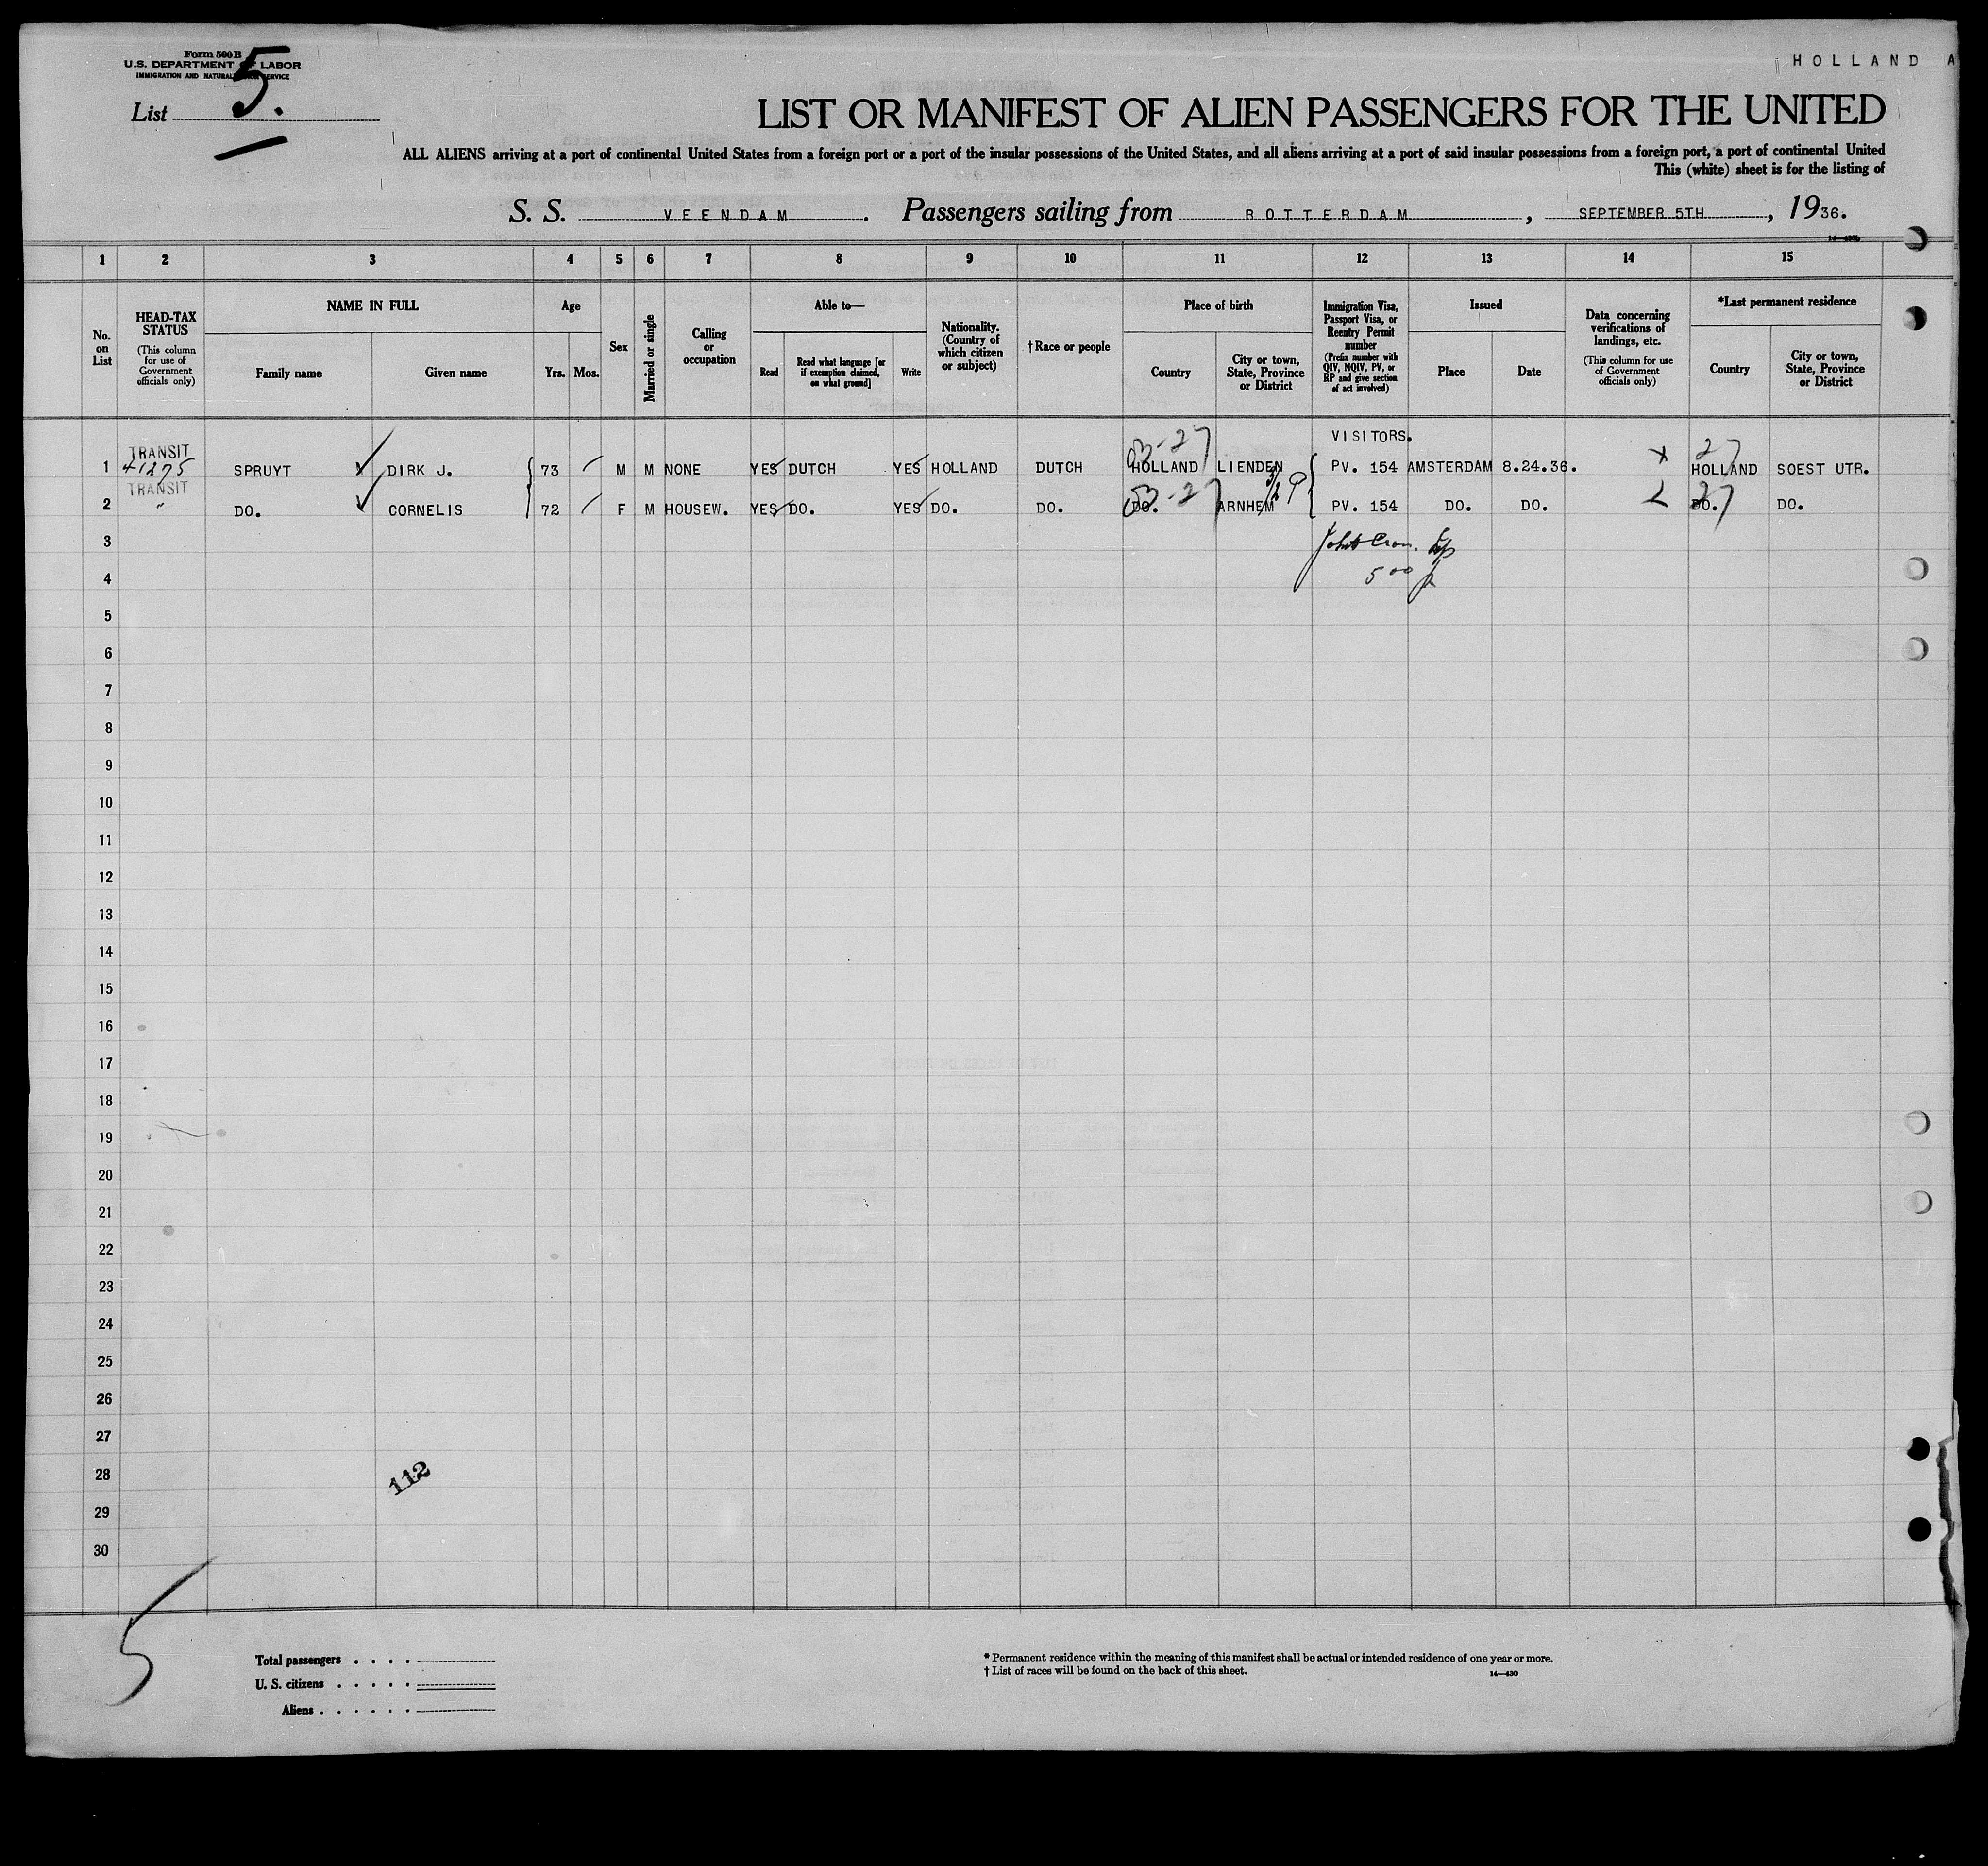 Form 500 B
U.S. DEPARTMENT OF LABOR
IMMIGRATION AND NATURALIZATION SERVICE
List 5.
HOLLAND A
LIST OR MANIFEST OF ALIEN PASSENGERS FOR THE UNITED
ALL ALIENS arriving at a port of continental United States from a foreign port or a port of the insular possessions of the United States, and all aliens arriving at a port of said insular possessions from a foreign port, a port of continental United
This (white) sheet is for the listing of
S. S. VEENDAM. Passengers sailing from ROTTERDAM, SEPTEMBER 5TH, 1936.
1 2 3 4 5 6 7 8 9 10 11 12 13 14 15
No. on List
HEAD-TAX STATUS
(This column for use of Government officials only)
NAME IN FULL
Family name
Given name
Age
Yrs. Mos.
Sex
Married or single
Calling or occupation
Able to—
Read
Read what language [or if exemption claimed, on what ground]
Write
Nationality. (Country of which citizen or subject)
†Race or people
Place of birth
Country
City or town, State, Province or District
Immigration Visa, Passport Visa, or Reentry Permit number
(Prefix number with QIV, NQIV, PV, or RP and give section of act involved)
Issued
Place
Date
Data concerning verifications of landings, etc.
(This column for use of Government officials only)
*Last permanent residence
Country
City or town, State, Province or District
TRANSIT
VISITORS.
1 41275 SPRUYT DIRK J. 73 M M NONE YES DUTCH YES HOLLAND DUTCH HOLLAND LIENDEN PV. 154 AMSTERDAM 8.24.36. HOLLAND SOEST UTR.
27
TRANSIT
2 " DO. CORNELIS 72 F M HOUSEW. YES DO. YES DO. DO. DO. ARNHEM PV. 154 DO. DO. DO. DO.
27
3
4 500
5
6
7
8
9
10
11
12
13
14
15
16
17
18
19
20
21
22
23
24
25
26
27
28 112
29
30
5
Total passengers . . . .
U. S. citizens . . . . .
Aliens . . . . . .
* Permanent residence within the meaning of this manifest shall be actual or intended residence of one year or more.
† List of races will be found on the back of this sheet.
14—430